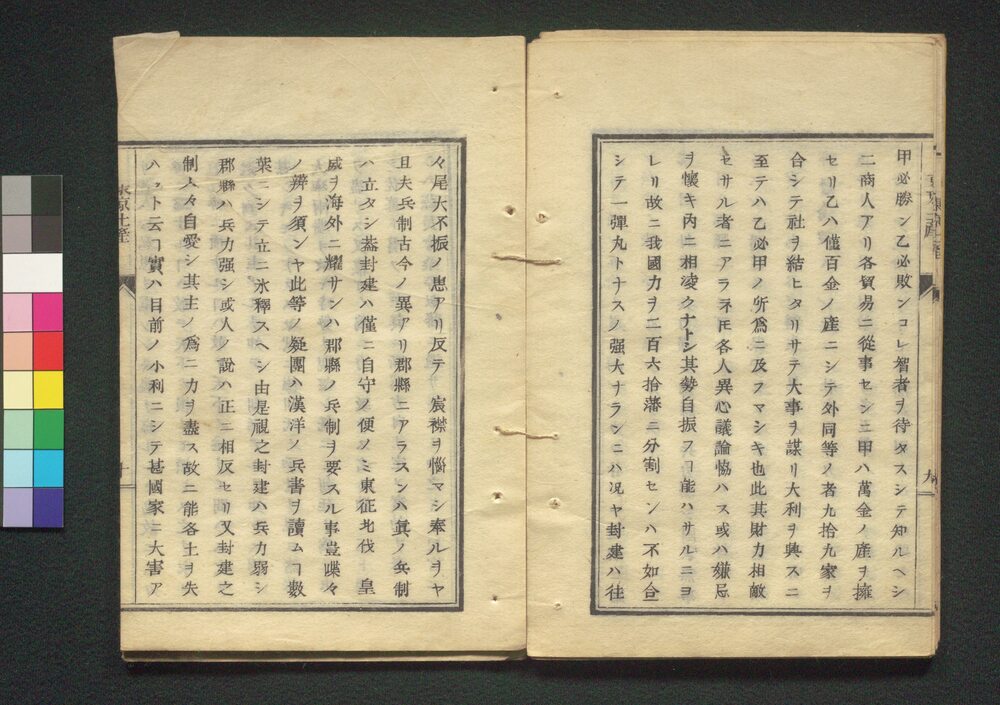 甲必勝ン乙必敗ンコレ智者ヲ待タスシテ知ルヘシ
二商人アリ各貿易ニ從事セシニ甲ハ萬金ノ產ヲ擁
セリ乙ハ僅百金ノ產ニシテ外同等ノ者九拾九家ヲ
合シテ社ヲ結ヒタリサテ大事ヲ謀リ大利ヲ興スニ
至テハ乙必甲ノ所爲ニ及フマシキ也此其財力相敵
セサル者ニアラネ𪜈各人異心議論協ハス或ハ嫌忌
ヲ懷キ內ニ相凌クナトシ其勢自振フヿ能ハサルニヨ
レリ故ニ我國力ヲ二百六拾藩ニ分割センハ不如合
シテ一彈丸トナスノ强大ナランニハ况ヤ封建ハ往
九
々尾大不振ノ患アリ反テ 宸襟ヲ惱マシ奉ルヲヤ
且夫兵制古今ノ異アリ郡縣ニアラスンハ眞ノ兵制
ハ立タシ葢封建ハ僅ニ自守ノ便ノミ東征北伐 皇
威ヲ海外ニ耀サンハ郡縣ノ兵制ヲ要スル事豈喋々
ノ辨ヲ須ンヤ此等ノ疑團ハ漢洋ノ兵書ヲ讀ムヿ數
葉ニシテ立ニ氷釋スヘシ由是視之封建ハ兵力弱シ
郡縣ハ兵力强シ或人ノ說ハ正ニ相反セリ又封建之
制人々自愛シ其主ノ爲ニ力ヲ盡ス故ニ能各土ヲ失
ハスト云フヿ實ハ目前ノ小利ニシテ甚國家ニ大害ア